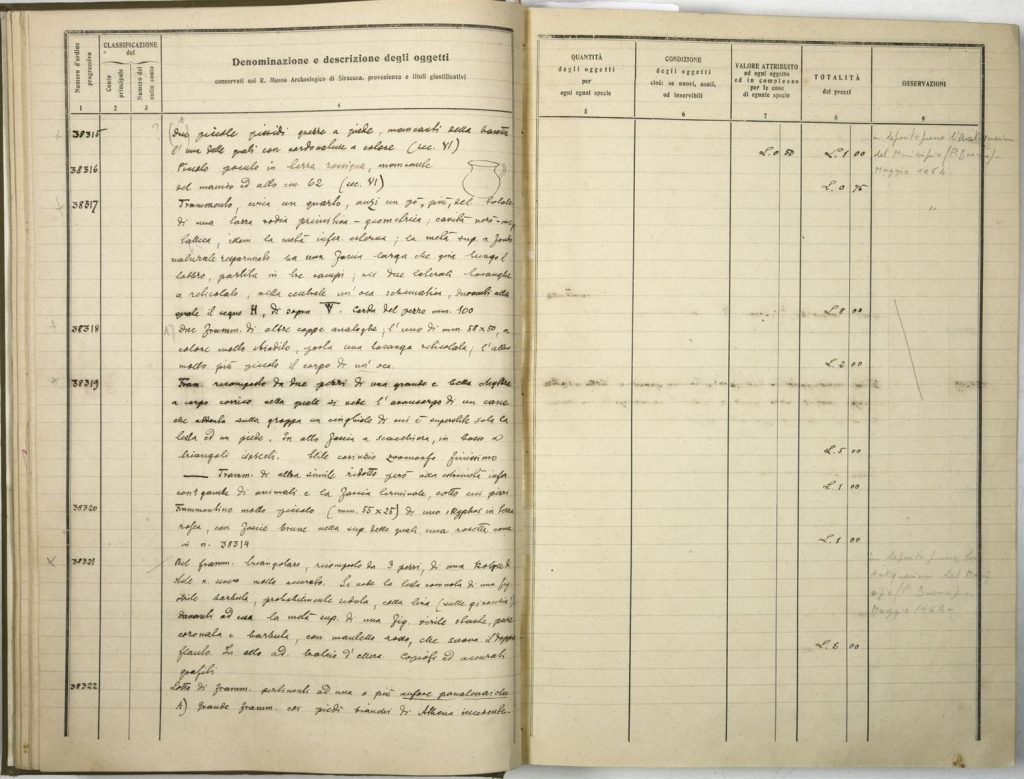 Numero d'ordine progressivo
CLASSIFICAZIONE
del
Conto principale
Numero del sotto conto
Denominazione e descrizione degli oggetti
conservati nel R. Museo Archeologico di Siracusa, provenienza e titoli giustificativi
1 2 3 4
38315
Due piccole pissidi grezze a piede, mancanti della
l'una delle quali con cordonature a colore (sec. VI)
38316
Piccolo poculo in terra rossigna, mancante
del manico ed alto cm. 62 (sec. VI)
38317
Frammento, circa un quarto, anzi un pò più, del totale
di una tazza rodia primitiva - geometrica; cavità nero-
idem la metà infer. esterna; la metà sup. a fondo
naturale risparmiato ha una fascia larga che gira lungo il
labbro, partita in tre campi; nei due laterali losanghe
a reticolato, nella centrale un'oca schematica, davanti alla
quale il segno H, di sopra. Corda del pezzo mm. 100
38318
Due framm. di altre coppe analoghe; l'uno di mm. 58 x 50, a
colore molto sbiadito, porta una losanga reticolata; l'altro
molto più piccolo il corpo di un'oca.
38319
Fram. ricomposto da due pezzi di una grande e bella
a corpo conico nella quale si vede l'avancorpo di un cane
che addenta sulla groppa un cinghiale di cui è superstite solo la
testa ed un piede. In alto fascia a scacchiera, in basso a
triangoli isosceli. Stile corinzio zoomorfo finissimo
— Framm. di altra simile ridotto però alla estremità infer.
con gambe di animali e la fascia terminale, sotto cui
38320
Frammentino molto piccolo (mm. 55 x 25) di uno skyphos in terra
rossa, con fascie brune nella sup. delle quali una rosetta come
n. 38314
38321
Bel framm. triangolare, ricomposto da 3 pezzi, di una Kelebe di
stile n. severo molto accurato. Si vede la testa coronata di una fig.
virile barbuta, probabilmente seduta, colla lira (sulle ginocchia?)
davanti ad essa la metà sup. di una fig. virile stante, pure
coronata e barbuta, con mantello rosso, che suona il doppio
flauto. In alto ad. tralcio d'edera. Copiosi ed accurati
grafiti
38322
Lotto di framm. pertinenti ad una o più anfore panatenaiche
A) grande framm. coi piedi bianchi di Athena incedente.
QUANTITÀ
degli oggetti
per
ogni egual specie
CONDIZIONE
degli oggetti
cioè: se nuovi, usati,
od inservibili
VALORE ATTRIBUITO
ad ogni oggetto
ed in complesso
per le cose
di eguale specie
TOTALITÀ
dei prezzi
OSSERVAZIONI
5 6 7 8 9
L. 0 50 L. 1 00
in deposito presso l'Antiquarium
del Municipio
Maggio 1964
L. 0 75
L. 8 00
L. 2 00
L. 5 00
L. 1 00
L. 1 00
in deposito presso
Antiquarium del
Maggio 1964
L. 6 00